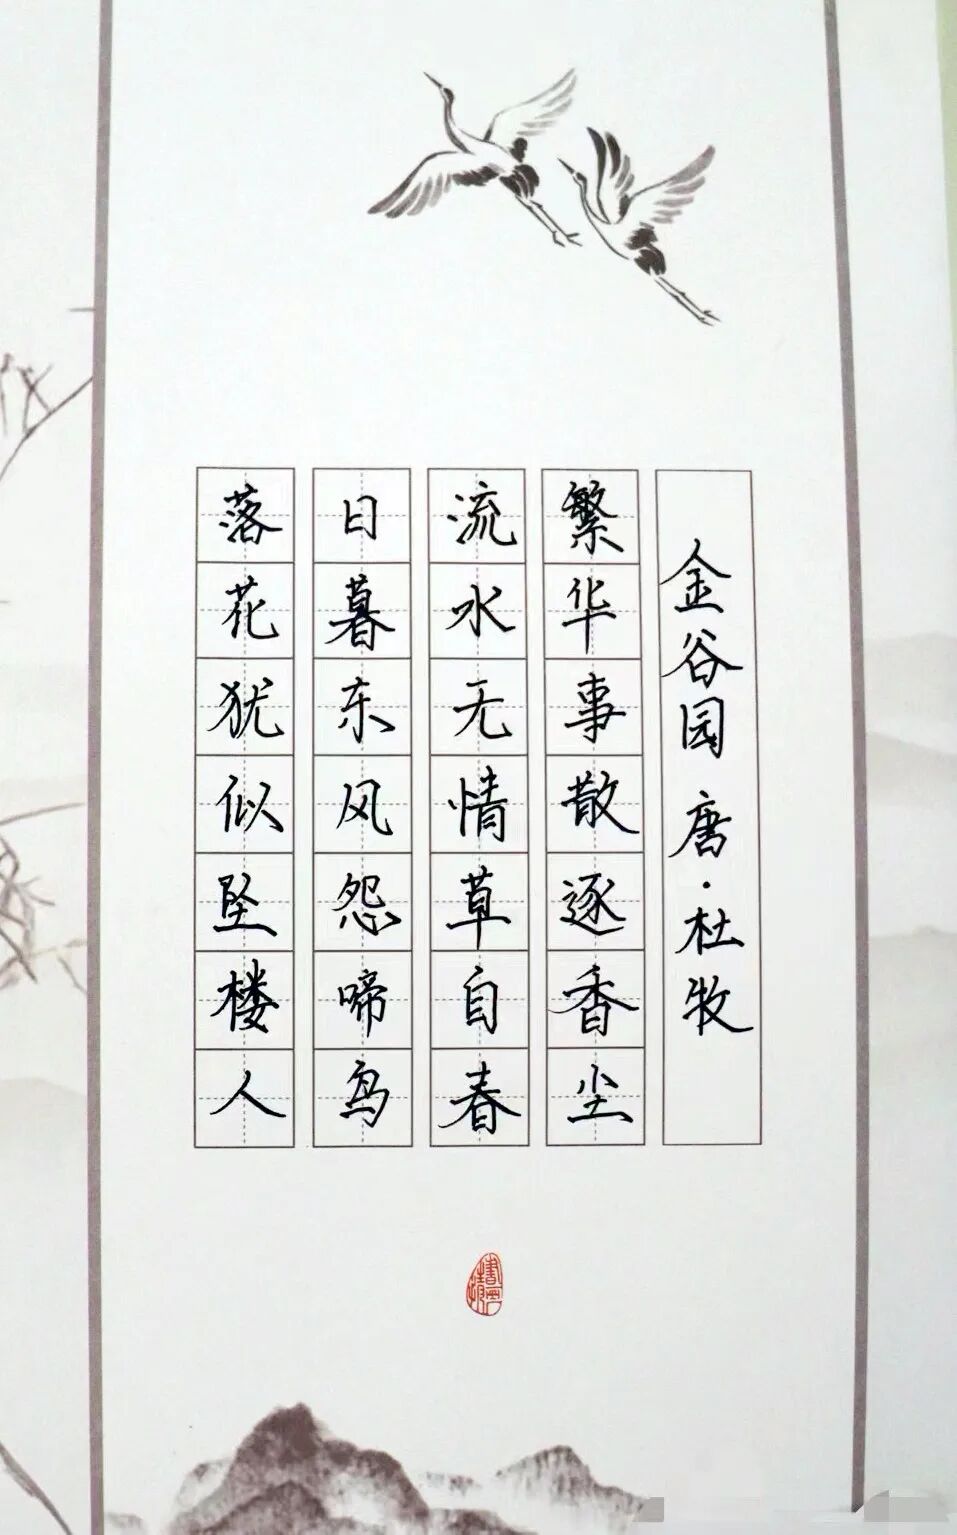 金谷园 唐·杜牧
繁华事散逐香尘
流水无情草自春
日暮东风怨啼鸟
落花犹似坠楼人